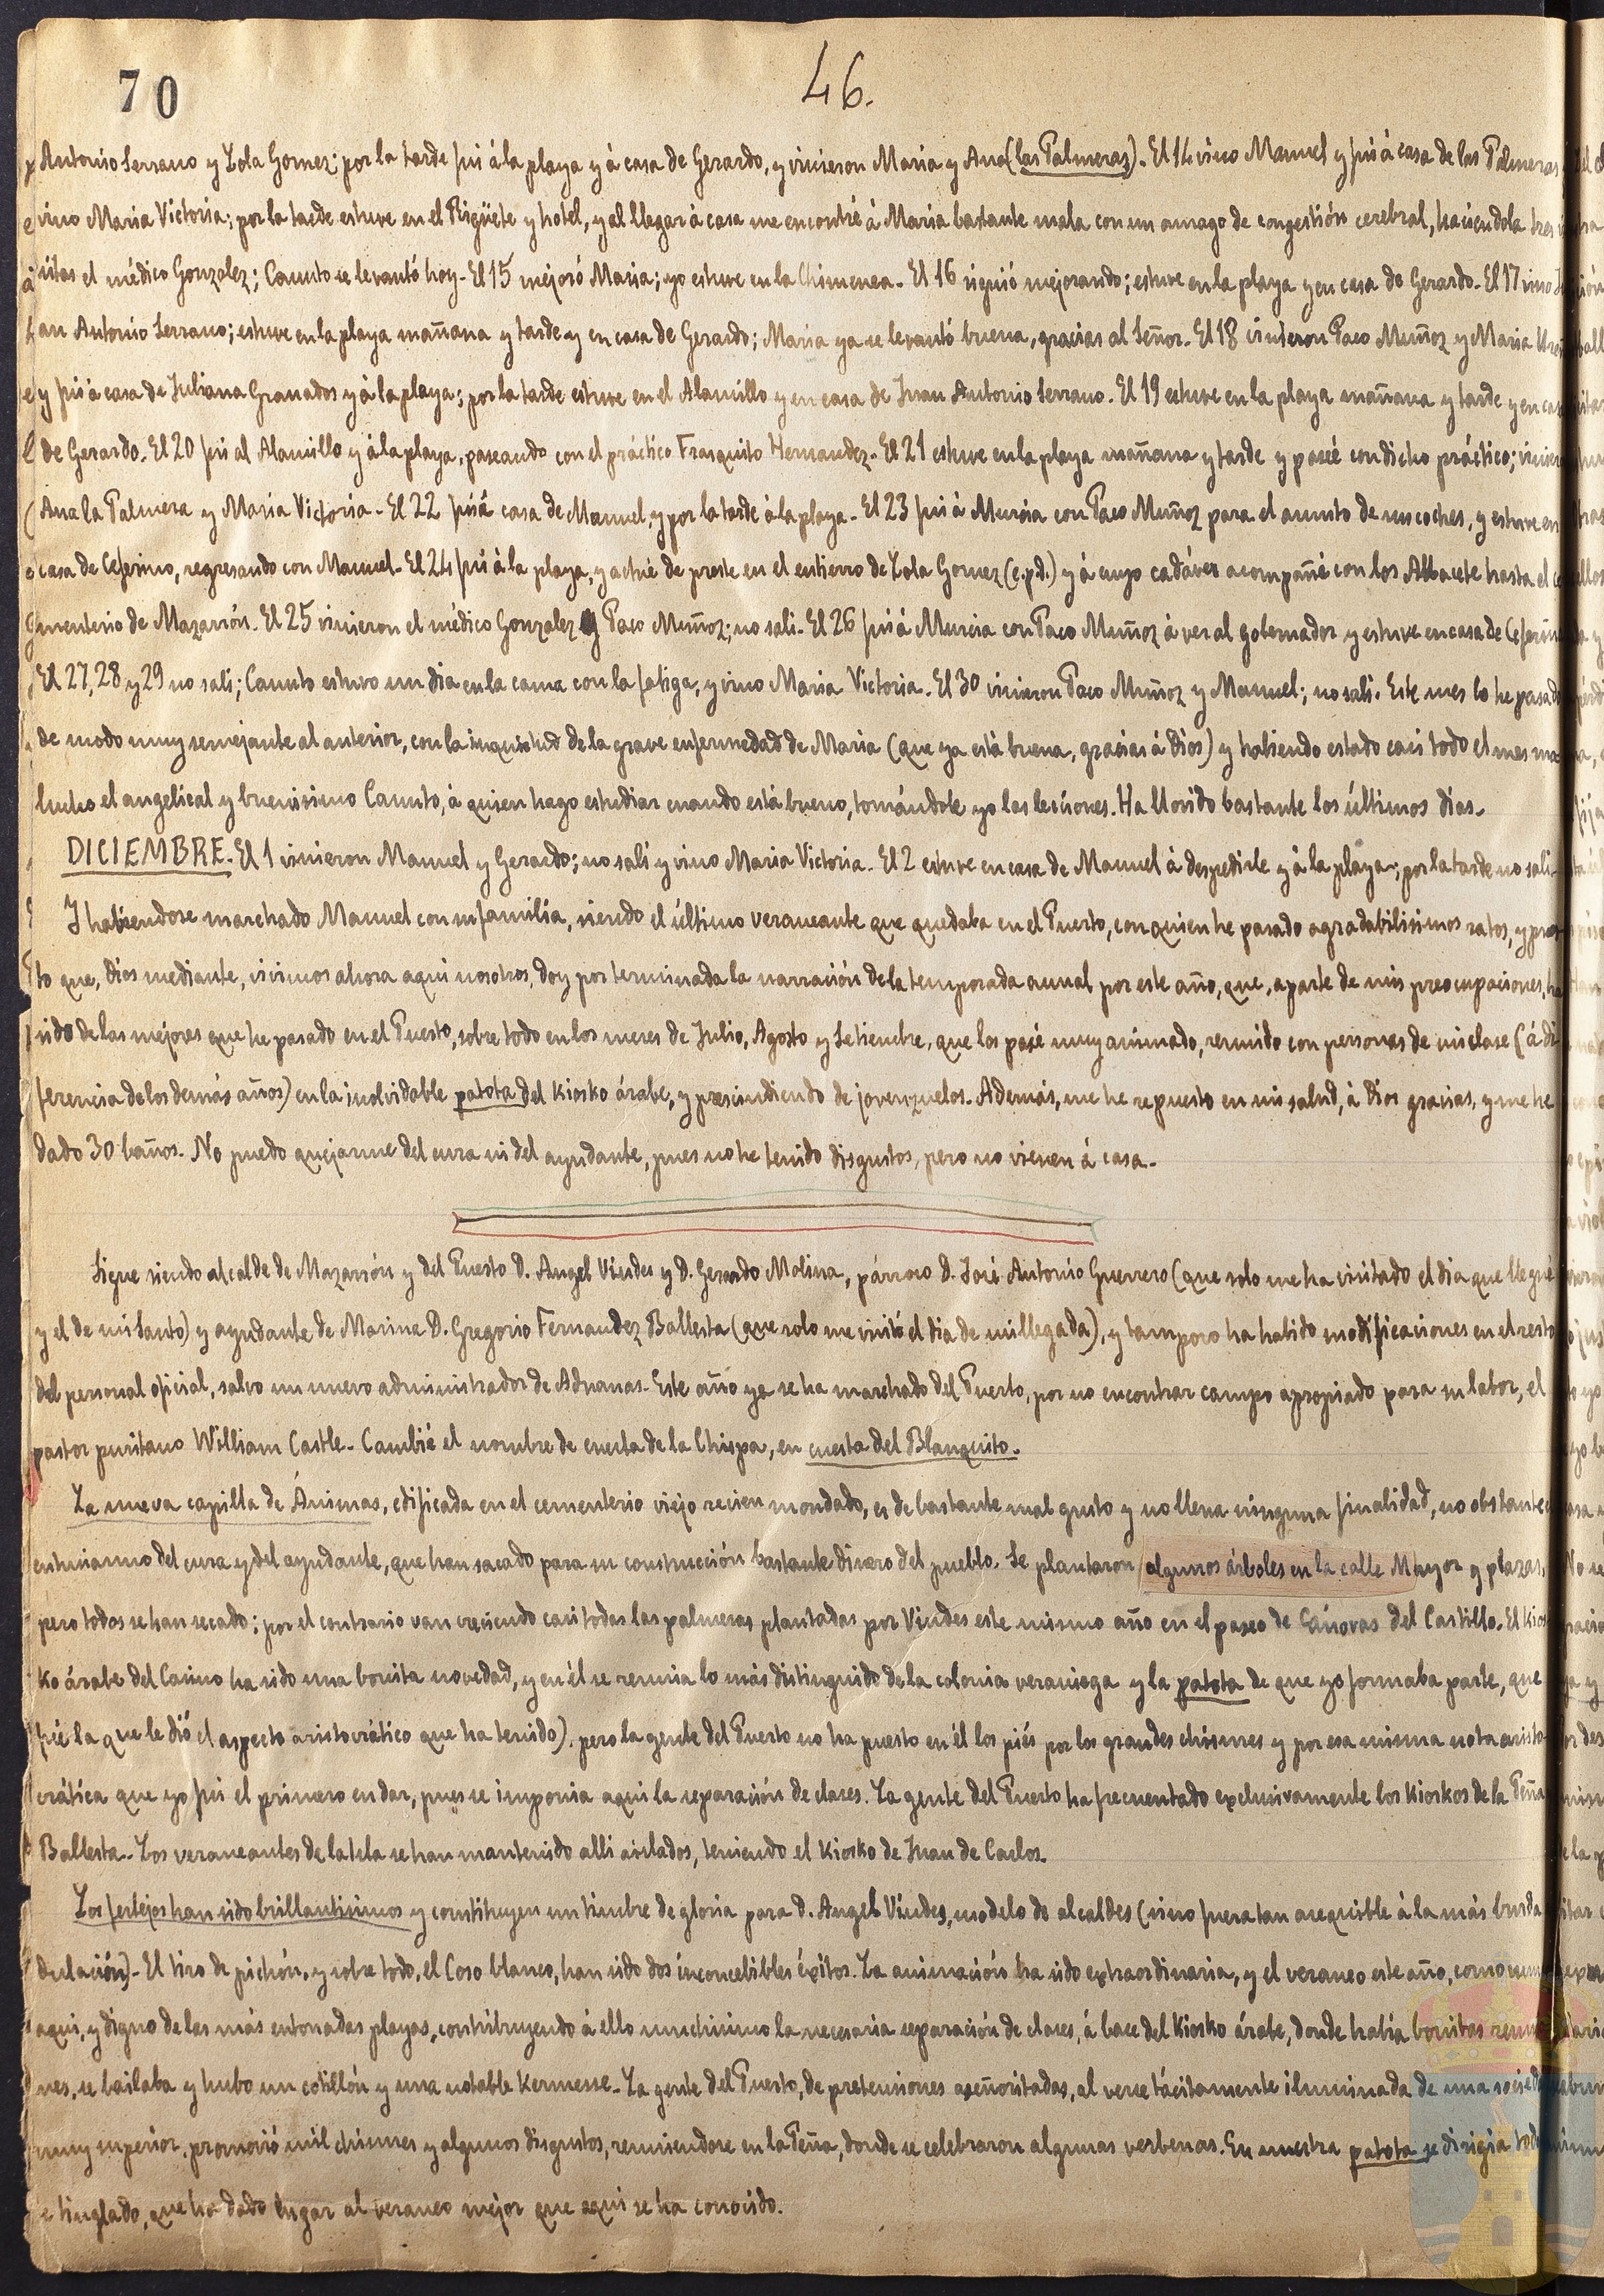 70
46.
Antonio Serrano y Lola Gomez; por la tarde fui á la playa y á casa de Gerardo, y vinieron Maria y Ana (las Palmeras). El 14 vino Manuel y fui á casa de las Palmeras
vino Maria Victoria; por la tarde estuve en el Rigüete y hotel, y al llegar á casa me encontré á Maria bastante mala con un amago de congestión cerebral, haciéndola tres vi
sitas el médico Gonzalez; Canuto se levantó hoy. El 15 mejoró Maria; yo estuve en la Chimenea. El 16 siguió mejorando; estuve en la playa y en casa de Gerardo. El 17 vino
an Antonio Serrano; estuve en la playa mañana y tarde y en casa de Gerardo; Maria ya se levantó buena, gracias al Señor. El 18 vinieron Paco Muñoz y Maria
y fui á casa de Juliana Granados y á la playa; por la tarde estuve en el Alamillo y en casa de Juan Antonio Serrano. El 19 estuve en la playa mañana y tarde y en casa
de Gerardo. El 20 fui al Alamillo y á la playa, paseando con el práctico Frasquito Hernandez. El 21 estuve en la playa mañana y tarde y paseé con dicho práctico;
Ana la Palmera y Maria Victoria. El 22 fui á casa de Manuel, y por la tarde á la playa. El 23 fui á Murcia con Paco Muñoz para el asunto de sus coches, y estuve en
casa de Ceferino, regresando con Manuel. El 24 fui á la playa, y actué de preste en el entierro de Lola Gomez (e.p.d.) y á cuyo cadáver acompañé con los Albacete hasta el ce
menterio de Mazarrón. El 25 vinieron el médico Gonzalez y Paco Muñoz; no sali. El 26 fui á Murcia con Paco Muñoz á ver al gobernador y estuve en casa de Ceferino
El 27, 28 y 29 no sali; Canuto estuvo un dia en la cama con la fatiga, y vino Maria Victoria. El 30 vinieron Paco Muñoz y Manuel; no sali. Este mes lo he pasado
de modo muy semejante al anterior, con la inquietud de la grave enfermedad de Maria (que ya está buena, gracias á Dios) y habiendo estado casi todo el mes ma
lucho el angelical y buenisimo Canuto, á quien hago estudiar cuando está bueno, tomándole yo las lecciones. Ha llovido bastante los últimos dias.
DICIEMBRE. El 1 vinieron Manuel y Gerardo; no salí y vino Maria Victoria. El 2 estuve en casa de Manuel á despedirle y á la playa; por la tarde no sali.
Y habiendose marchado Manuel con su familia, siendo el último veraneante que quedaba en el Puerto, con quien he pasado agradabilisimos ratos, y pues
to que, Dios mediante, vivimos ahora aqui nosotros, doy por terminada la narración de la temporada anual por este año, que, aparte de mis preocupaciones, ha
sido de las mejores que he pasado en el Puerto, sobre todo en los meses de Julio, Agosto y Setiembre, que los pasé muy animado, reunido con personas de mi clase (á di
ferencia de los demás años) en la inolvidable patota del Kiosko árabe, y prescindiendo de jovenzuelos. Además, me he repuesto en mi salud, á Dios gracias, y me he
dado 30 baños. No puedo quejarme del cura ni del ayudante, pues no he tenido disgustos, pero no vienen á casa.
Sigue siendo alcalde de Mazarrón y del Puerto D. Angel Viudes y D. Gerardo Molina, párroco D. José Antonio Guerrero (que solo me ha visitado el dia que llegué
y el de mi Santo) y ayudante de Marina D. Gregorio Fernandez Ballesta (que solo me visitó el dia de mi llegada), y tampoco ha habido modificaciones en el resto
del personal oficial, salvo un nuevo administrador de Aduanas. Este año ya se ha marchado del Puerto, por no encontrar campo apropiado para su labor, el
pastor puritano William Castle. Cambié el nombre de cuesta de la Chispa, en cuesta del Blanquito.
La nueva capilla de Ánimas, edificada en el cementerio viejo recien mondado, es de bastante mal gusto y no llena ninguna finalidad, no obstante
entusiasmo del cura y del ayudante, que han sacado para su construcción bastante dinero del pueblo. Se plantaron algunos árboles en la calle Mayor y plazas,
pero todos se han secado; por el contrario van creciendo casi todas las palmeras plantadas por Viudes este mismo año en el paseo de Cánovas del Castillo. El Kios
ko árabe del Casino ha sido una bonita novedad, y en él se reunia lo más distinguido de la colonia veraniega y la patota de que yo formaba parte, que
fué la que le dió el aspecto aristocrático que ha tenido), pero la gente del Puerto no ha puesto en él los piés por los grandes chismes y por esa misma nota aristo
crática que yo fui el primero en dar, pues se imponia aqui la separación de clases. La gente del Puerto ha frecuentado exclusivamente los Kioskos de la Peña
Ballesta. Los veraneantes de la Isla se han mantenido alli aislados, teniendo el Kiosko de Juan de Carlos.
Los festejos han sido brillantisimos y constituyen un timbre de gloria para D. Angel Viudes, modelo de alcaldes (si no fuera tan asequible á la más burda
dulación). El tiro de pichón, y sobre todo, el Coso blanco, han sido dos inconcebibles éxitos. La animación ha sido extraordinaria, y el veraneo este año, como
aqui, y digno de las más entonadas playas, contribuyendo á ello muchisimo la necesaria separación de clases, á base del Kiosko árabe, donde habia bonitas reunio
nes, se bailaba y hubo un cotillón y una notable Kermesse. La gente del Puerto, de pretensiones aseñoritadas, al verse tácitamente eliminada de una sociedad
muy superior, promovió mil chismes y algunos disgustos, reuniendose en la Peña, donde se celebraron algunas verbenas. En nuestra patota se dirigia todo
e tinglado, que ha dado lugar al veraneo mejor que aqui se ha conocido.